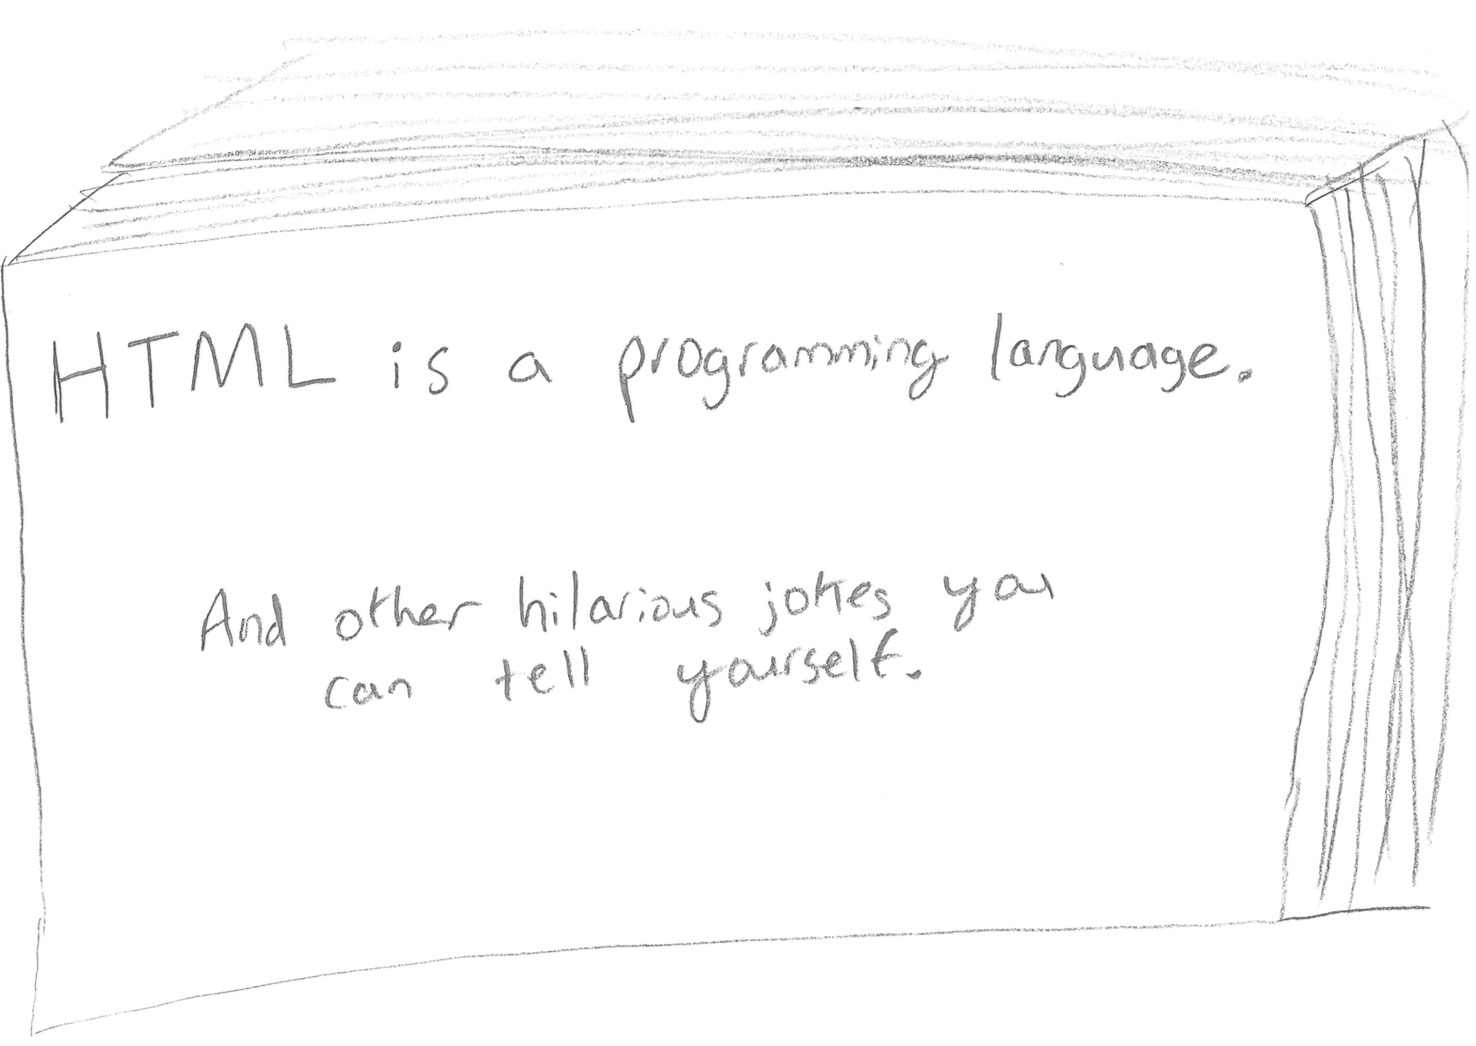 HTML is a programming language.
And other hilarious jokes you
can tell yourself.